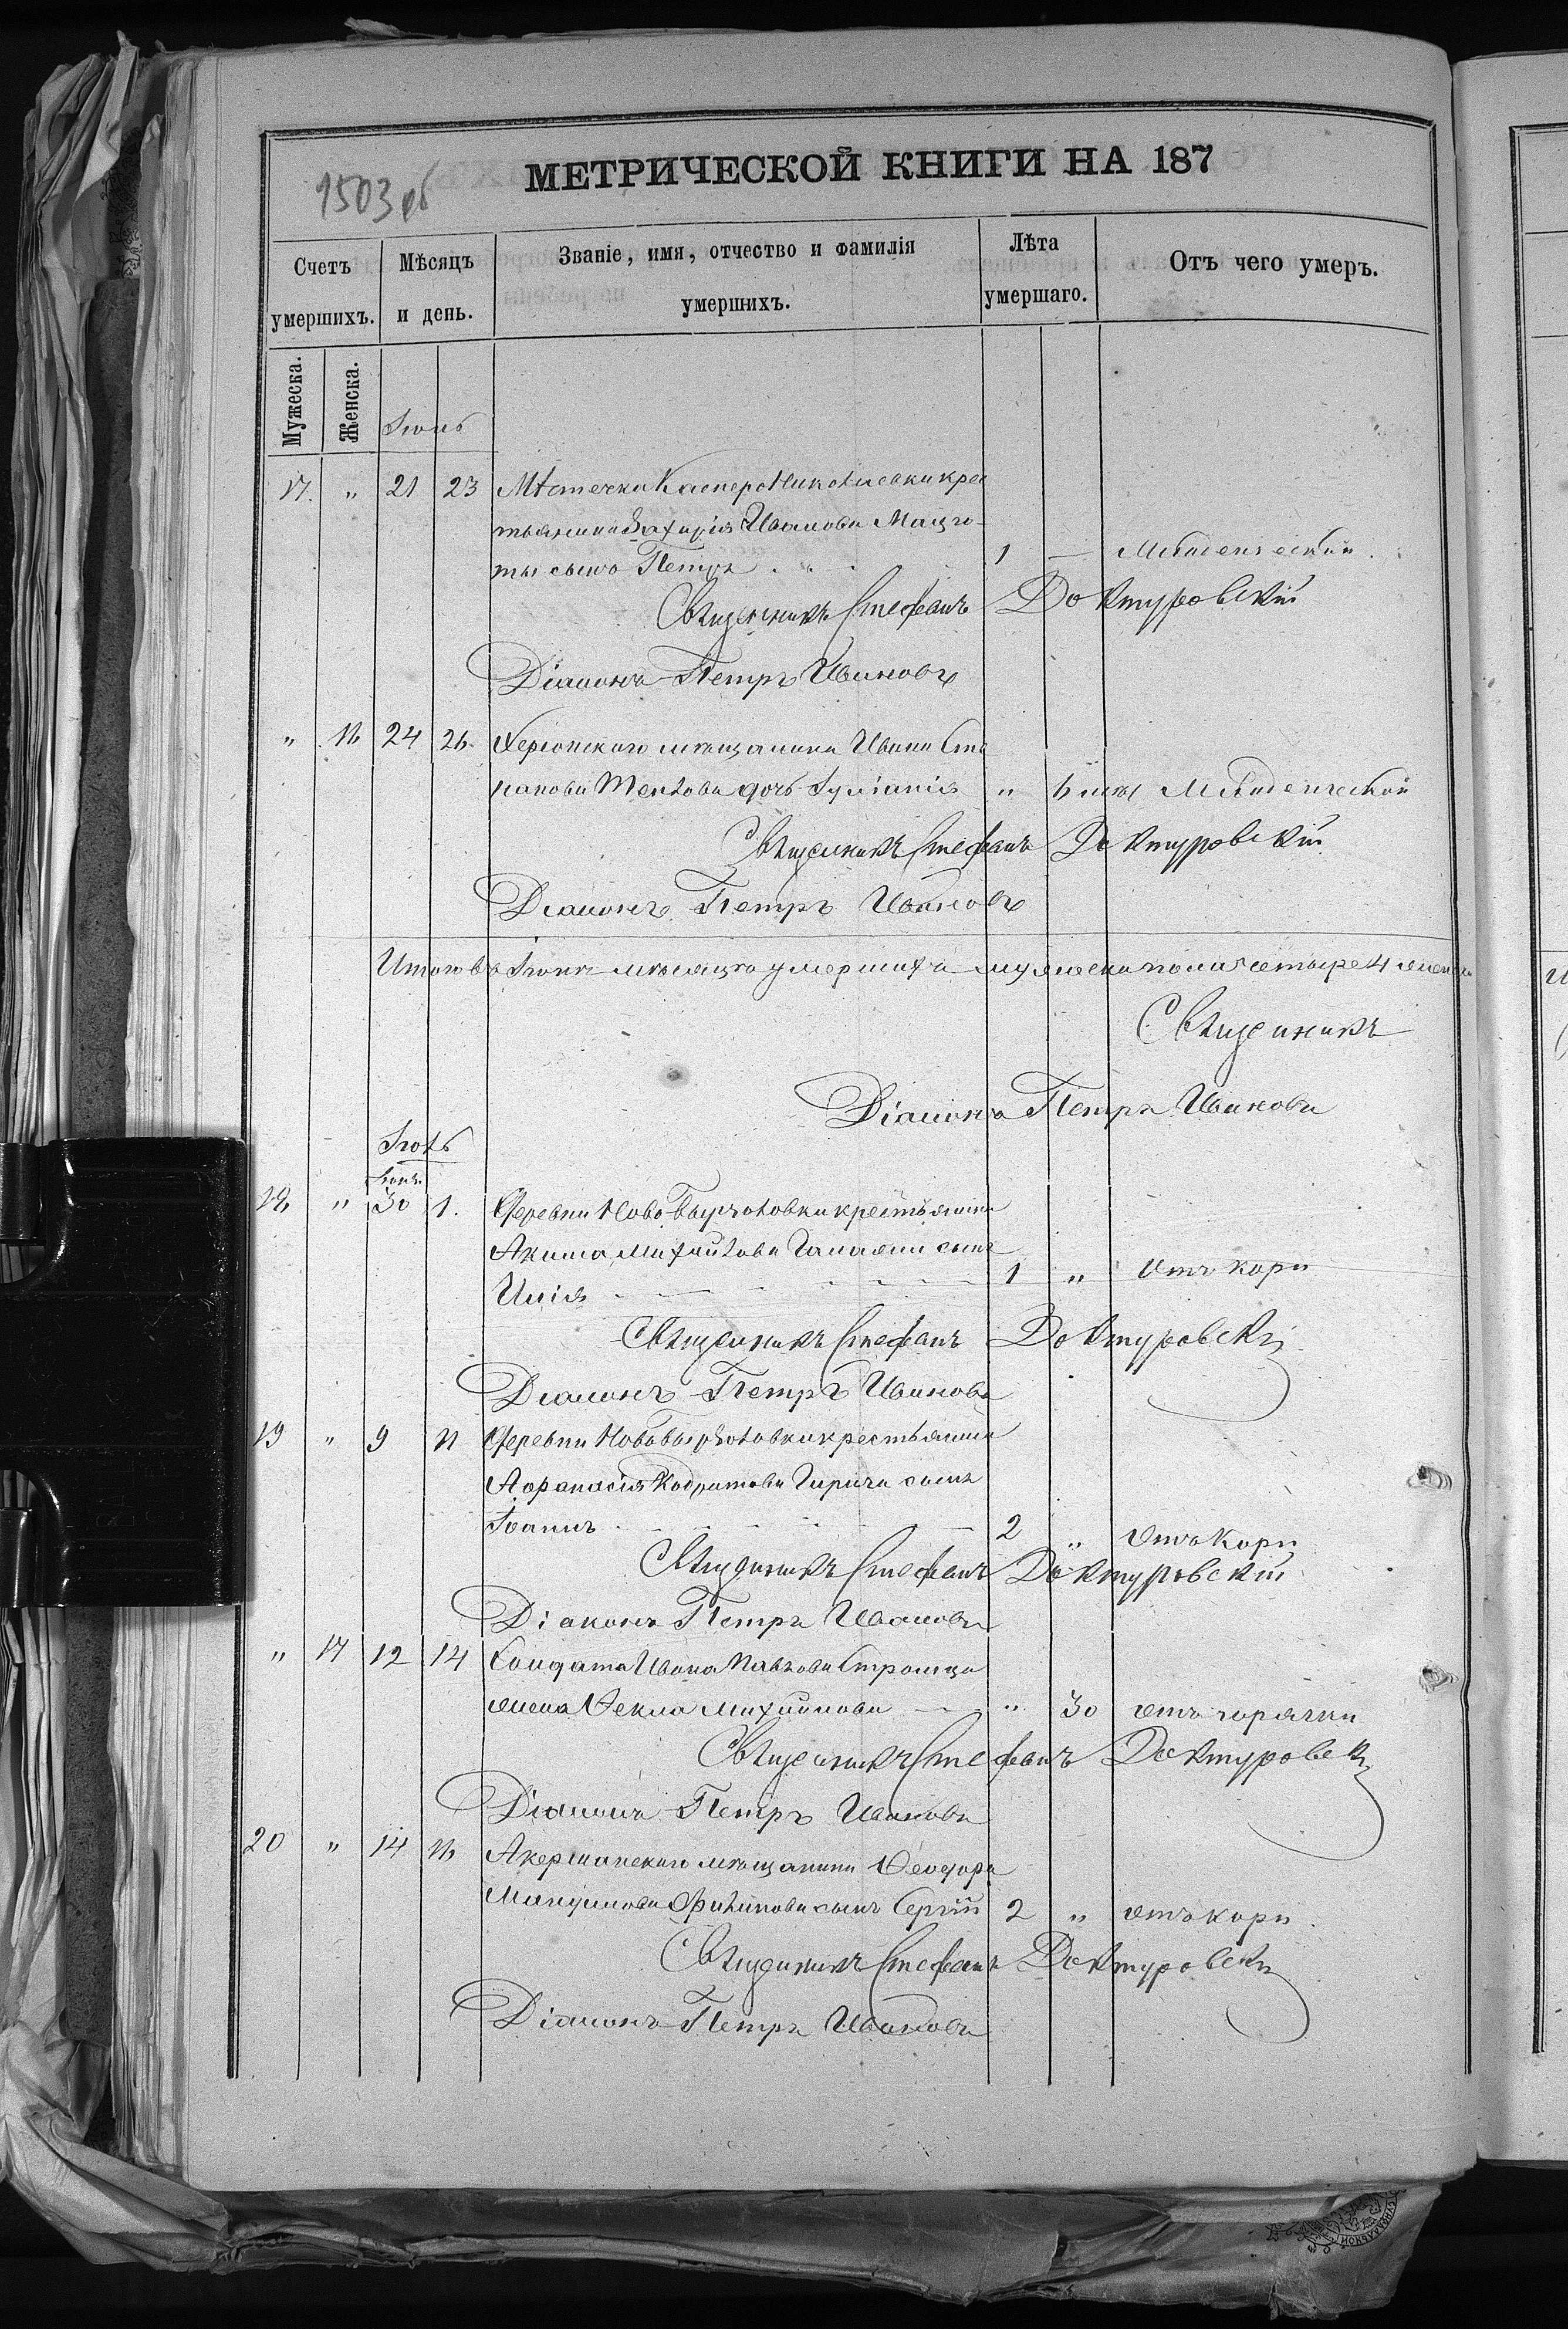 1503 об
МЕТРИЧЕСКОЙ КНИГИ НА 187
Счетъ умершихъ.
Мѣсяцъ и день.
Званіе, имя, отчество и фамилія умершихъ.
Лѣта умершаго.
Отъ чего умеръ.
Мужеска.
Женска.
Іюнь
17. " 21 23 Мѣстечка Касперо Николаевки крес
тьянина Захарія Иванова Мацго-
ты сынъ Петръ 1 — Младенческой.
Священникъ Стефанъ Доктуровскій
Діаконъ Петръ Ивановъ
" 16 24 26. Херсонскаго мѣщанина Ивана Сте
панова дочь Іуліанія " 6 мѣс Младенческой
Священникъ Стефанъ Доктуровскій
Діаконъ Петръ Ивановъ
Итого въ Іюнѣ мѣсяцѣ умершихъ мужеска пола четыре 4 женска
Священникъ
Діаконъ Петръ Ивановъ
Іюль
Іюня
18 " 30 1. Деревни Ново крестьянина
Акима Михайлова сынъ
Илія 1 " Отъ кори
Священникъ Стефанъ Доктуровскій
Діаконъ Петръ Ивановъ
19 " 9 11 Деревни Ново крестьянина
Аѳанасія Кодратова сынъ
Іоаннъ 2 " Отъ кори
Священникъ Стефанъ Доктуровскій
Діаконъ Петръ Ивановъ
" 17 12 14 Солдата Ивана Павлова
жена Ѳекла Михайлова " 30 отъ горячки
Священникъ Стефанъ Доктуровскій
Діаконъ Петръ Ивановъ
20 " 14 16 Акерманскаго мѣщанина Ѳеодора
Филипова сынъ Сергій 2 " отъ кори.
Священникъ Стефанъ Доктуровскій
Діаконъ Петръ Ивановъ